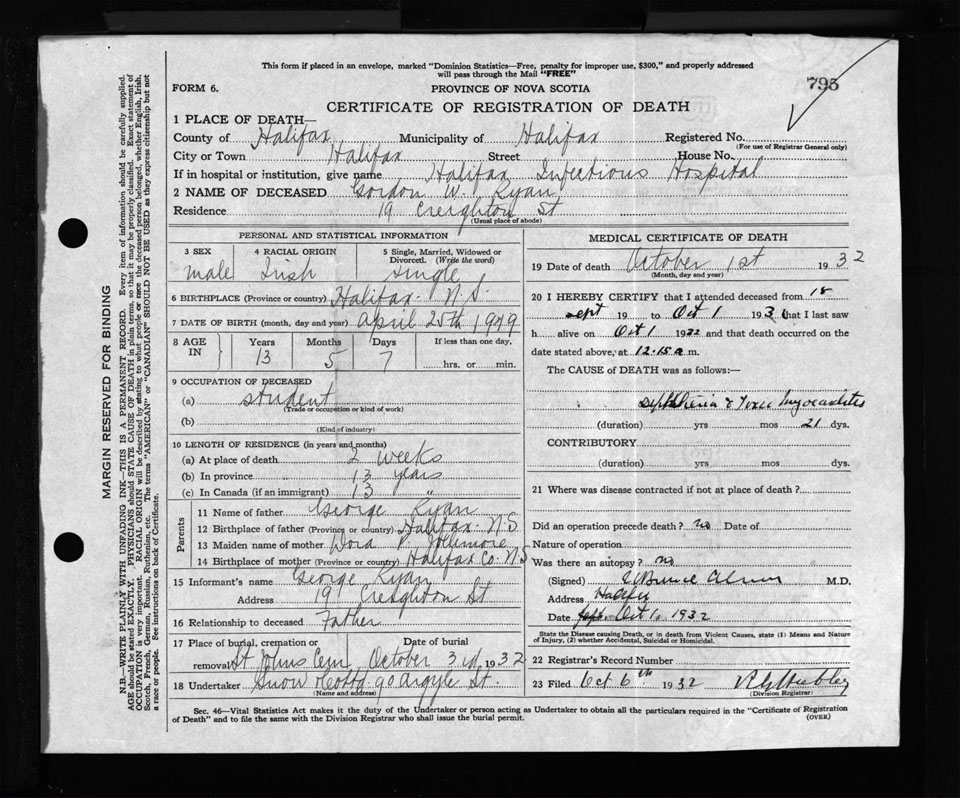 This form if placed in an envelope, marked "Dominion Statistics—Free, penalty for improper use, $300," and properly addressed
will pass through the Mail "FREE"
795
FORM 6.
PROVINCE OF NOVA SCOTIA
CERTIFICATE OF REGISTRATION OF DEATH
1 PLACE OF DEATH—
County of Halifax Municipality of Halifax Registered No.
(For use of Registrar General only)
City or Town Halifax Street House No.
If in hospital or institution, give name Halifax Infectious Hospital
2 NAME OF DECEASED Gordon W. Ryan
Residence 19 Creighton St
(Usual place of abode)
PERSONAL AND STATISTICAL INFORMATION
3 SEX 4 RACIAL ORIGIN 5 Single, Married, Widowed or
Divorced. (Write the word)
male Irish single
6 BIRTHPLACE (Province or country) Halifax N.S.
7 DATE OF BIRTH (month, day and year) April 25th 1919
8 AGE IN Years Months Days If less than one day,
13 5 7 hrs. or min.
9 OCCUPATION OF DECEASED
(a) student
(Trade or occupation or kind of work)
(b)
(Kind of industry)
10 LENGTH OF RESIDENCE (in years and months)
(a) At place of death 2 weeks
(b) In province 13 years
(c) In Canada (if an immigrant) 13 "
Parents
11 Name of father George Ryan
12 Birthplace of father (Province or country) Halifax N.S
13 Maiden name of mother Dora V. Jollimore
14 Birthplace of mother (Province or country) Halifax Co. N.S
15 Informant's name George Ryan
Address 19 Creighton St
16 Relationship to deceased Father
17 Place of burial, cremation or Date of burial
removal St Johns Cem October 3rd, 1932
18 Undertaker Snow 90 Argyle St.
(Name and address)
MEDICAL CERTIFICATE OF DEATH
19 Date of death October 1st 1932
(Month, day and year)
20 I HEREBY CERTIFY that I attended deceased from 18
sept 19 to Oct 1 193 that I last saw
h alive on Oct 1 1932 and that death occurred on the
date stated above, at 12.15 a m.
The CAUSE of DEATH was as follows:—
Diphtheria & Toxic Myocarditis
(duration) yrs mos 21 dys.
CONTRIBUTORY
(duration) yrs mos dys.
21 Where was disease contracted if not at place of death?
Did an operation precede death? no Date of
Nature of operation
Was there an autopsy? no
(Signed) M.D.
Address Halifax
Date Sept. Oct 1, 1932
State the Disease causing Death, or in death from Violent Causes, state (1) Means and Nature
of Injury, (2) whether Accidental, Suicidal or Homicidal.
22 Registrar's Record Number
23 Filed Oct 6th 1932
(Division Registrar)
Sec. 46—Vital Statistics Act makes it the duty of the Undertaker or person acting as Undertaker to obtain all the particulars required in the "Certificate of Registration
of Death" and to file the same with the Division Registrar who shall issue the burial permit. (OVER)
MARGIN RESERVED FOR BINDING
N.B.—WRITE PLAINLY WITH UNFADING INK—THIS IS A PERMANENT RECORD. Every item of information should be carefully supplied.
AGE should be stated EXACTLY. PHYSICIANS should STATE CAUSE OF DEATH in plain terms, so that it may be properly classified. Exact statement of
OCCUPATION is very important. RACIAL ORIGIN will be described by stating to what people or race the deceased person belonged, whether English, Irish,
Scotch, French, German, Russian, Ruthenian, etc. The terms "AMERICAN" or "CANADIAN" SHOULD NOT BE USED as they express citizenship but not
a race or people. See instructions on back of Certificate.